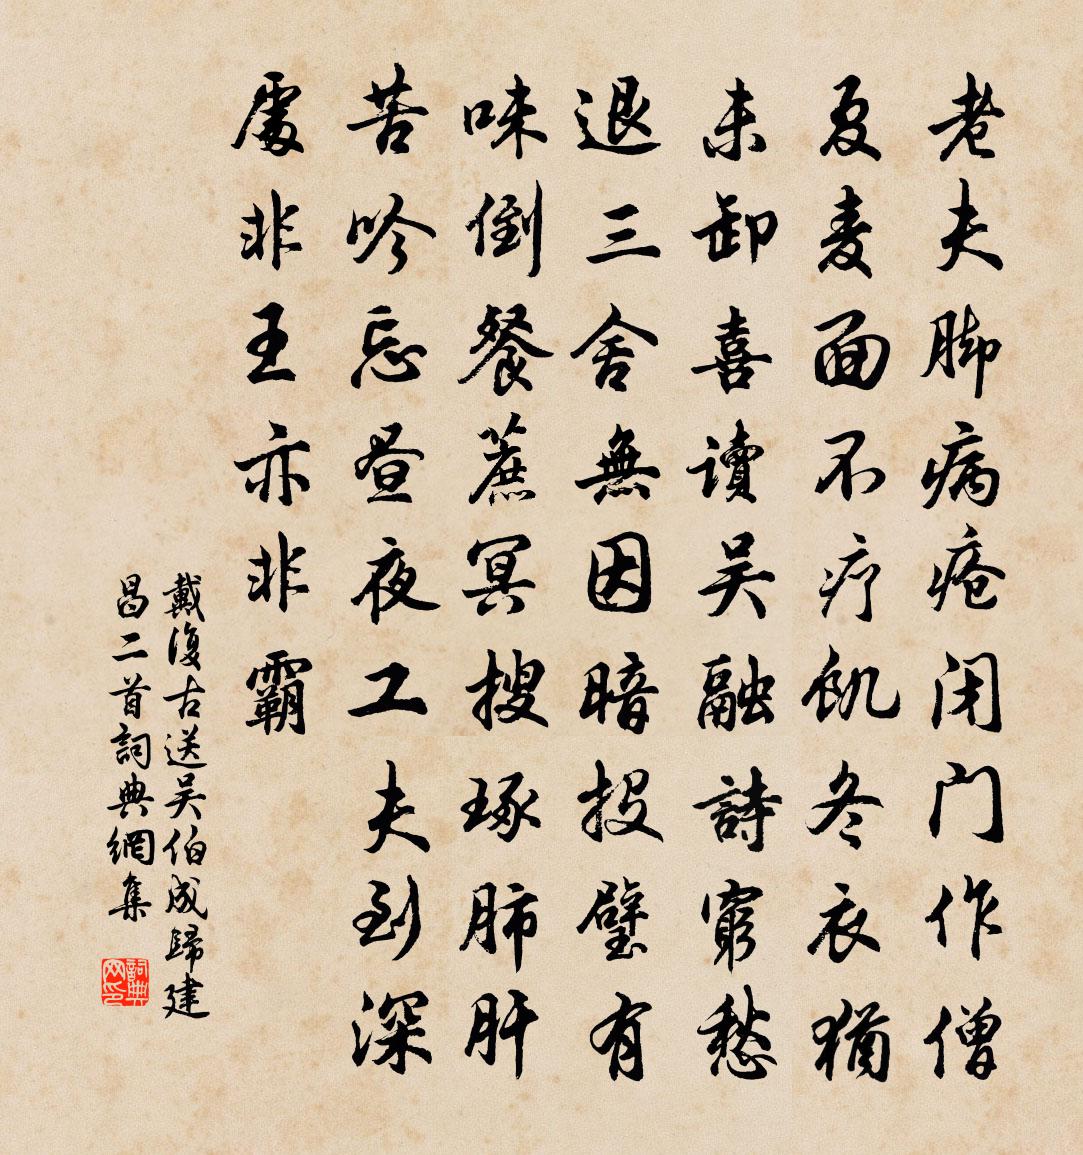 老夫脚病瘡闭门作僧
夏麦面不疗飢冬衣猶
未卸喜读吴融詩窮愁
退三舍無因暗投璧有
味倒餐蔗冥搜琢肺肝
苦吟忘昼夜工夫到深
處非王亦非霸
戴復古送吴伯成歸建
昌二首詞典網集
詞典
网印